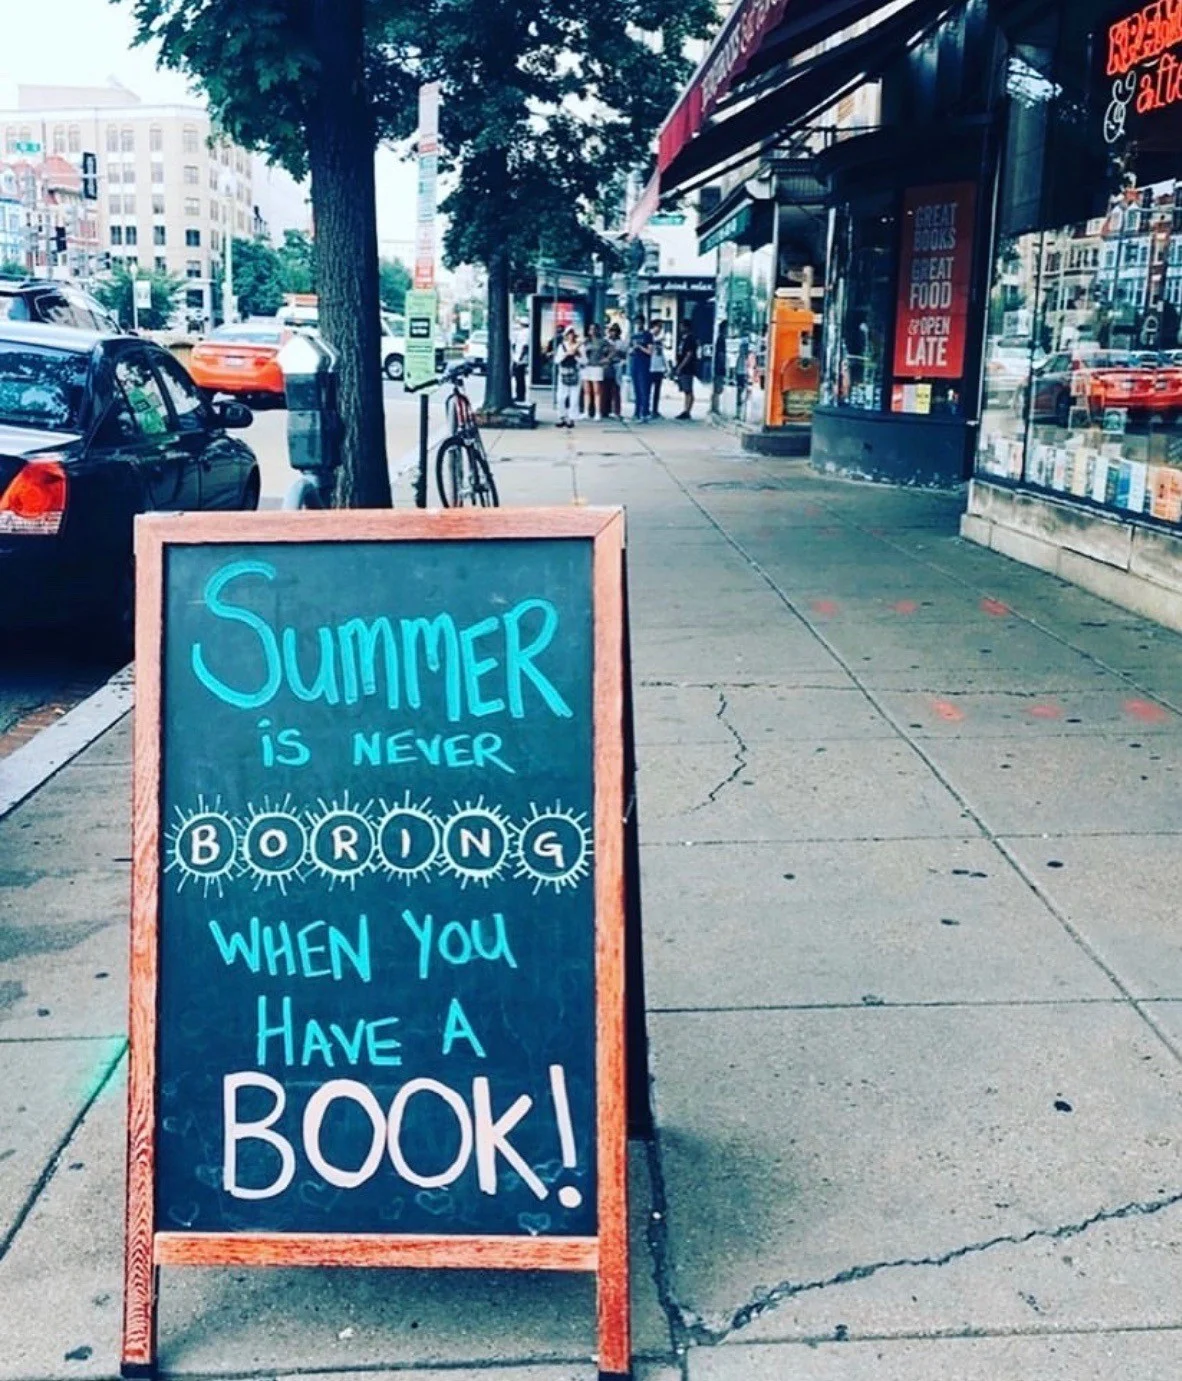 SUMMER
IS NEVER
BORING
WHEN YOU
HAVE A
BOOK!
GREAT
BOOKS
GREAT
FOOD
& OPEN
LATE
&